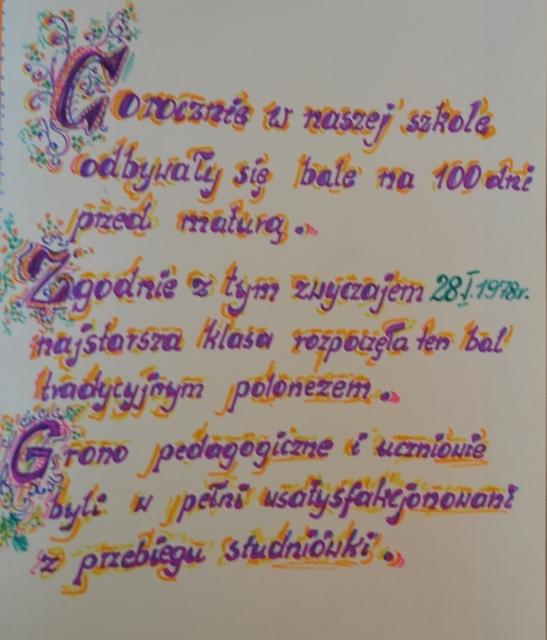 Corocznie w naszej szkole
odbywały się bale na 100 dni
przed maturą.
Zgodnie z tym zwyczajem 28.I.1978r.
najstarsza klasa rozpoczęła ten bal
tradycyjnym polonezem.
Grono pedagogiczne i uczniowie
byli w pełni usatysfakcjonowani
z przebiegu studniówki.